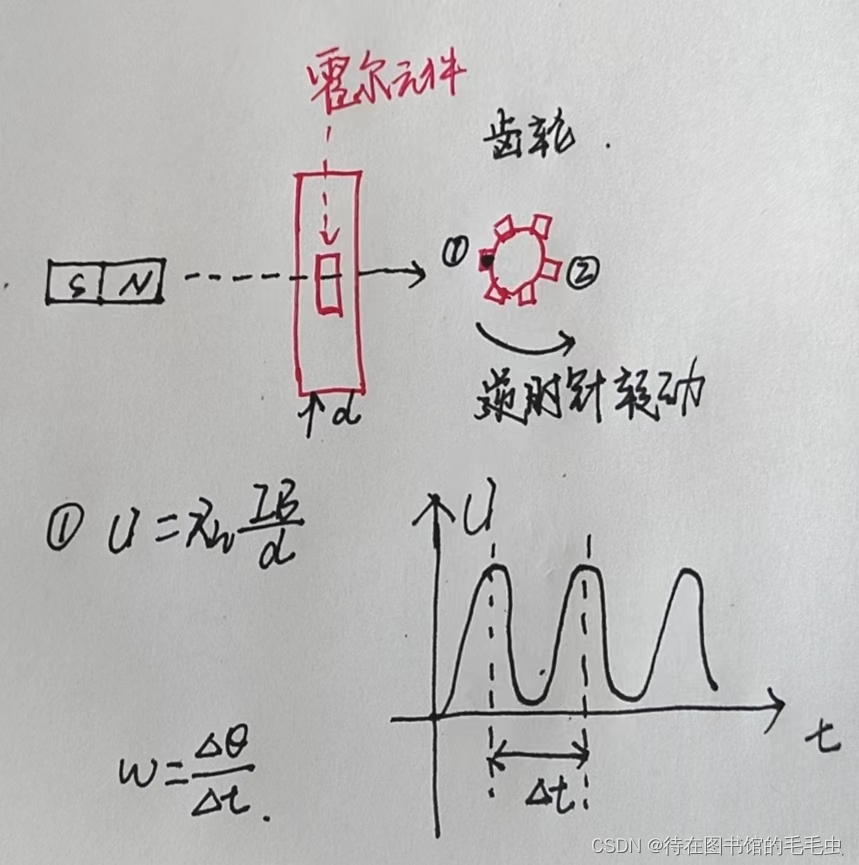 霍尔元件
齿轮.
S N
①
②
↑d
逆时针转动
① U = R_H IB/d
U
t
Δt
w = Δθ/Δt.
CSDN @待在图书馆的毛毛虫